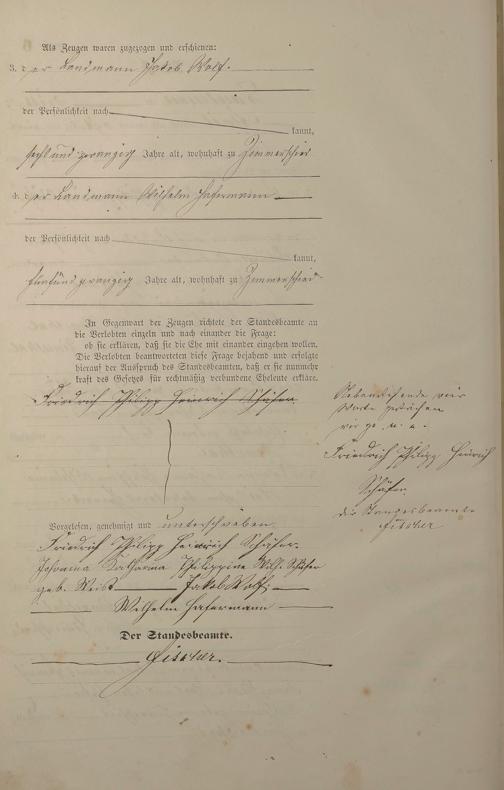 Als Zeugen waren zugezogen und erschienen:
3. der Landmann Jakob Wolf
der Persönlichkeit nach
kannt,
sechsundzwanzig Jahre alt, wohnhaft zu Zimmerschied
4. der Landmann Wilhelm Hafermann
der Persönlichkeit nach
kannt,
fünfundzwanzig Jahre alt, wohnhaft zu Zimmerschied
In Gegenwart der Zeugen richtete der Standesbeamte an
die Verlobten einzeln und nach einander die Frage:
ob sie erklären, daß sie die Ehe mit einander eingehen wollen.
Die Verlobten beantworteten diese Frage bejahend und erfolgte
hierauf der Ausspruch des Standesbeamten, daß er sie nunmehr
kraft des Gesetzes für rechtmäßig verbundene Eheleute erkläre.
Friedrich Philipp Heinrich Schäfer
Vorgelesen, genehmigt und unterschrieben
Friedrich Philipp Heinrich Schäfer
Johanna Catharina Philippine Wilh. Schäfer
geb. Jakob Wolf
Wilhelm Hafermann
Der Standesbeamte.
Fischer.
Nebenstehende vier
Worte gestrichen
Friedrich Philipp Heinrich
Schäfer
der Standesbeamte
Fischer